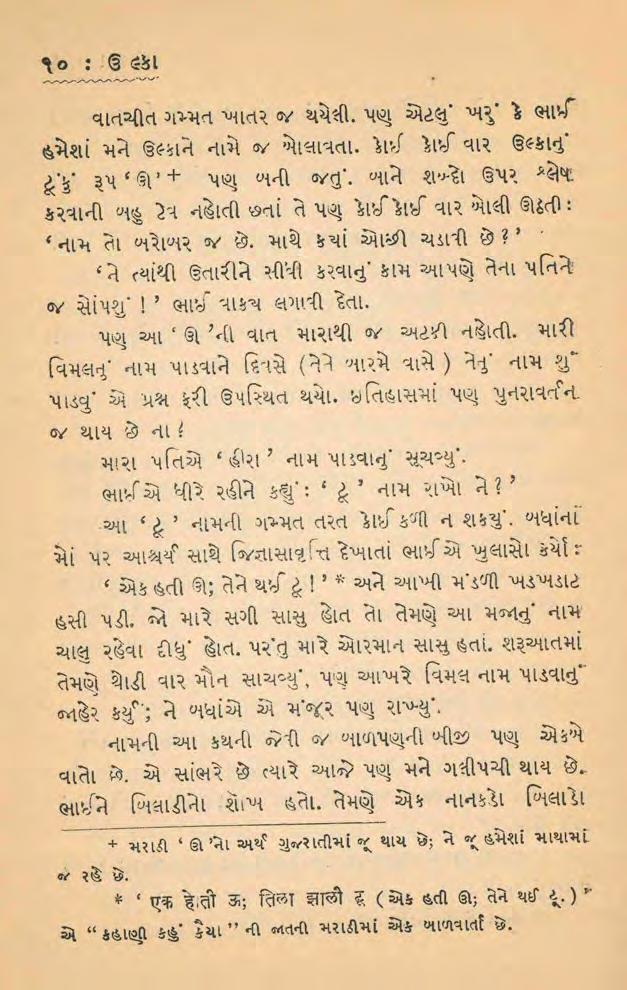 ૧૦ : ઉલ્કા
વાતચીત ગમ્મત ખાતર જ થયેલી. પણ એટલું ખરું કે ભાઈ
હમેશાં મને ઉલ્કાને નામે જ બોલાવતા. કોઈ કોઈ વાર ઉલ્કાનું
ટૂંકું રૂપ ‘ઊ’+ પણ બની જતું. બાને શબ્દો ઉપર શ્લેષ
કરવાની બહુ ટેવ નહોતી છતાં તે પણ કોઈ કોઈ વાર બોલી ઊઠતી :
‘નામ તો બરોબર જ છે. માથે કયાં ઓછી ચડાવી છે?’
‘તે ત્યાંથી ઉતારીને સીધી કરવાનું કામ આપણે તેના પતિને
જ સોંપશું !’ ભાઈ વાકય લગાવી દેતા.
પણ આ ‘ઊ’ની વાત મારાથી જ અટકી નહોતી. મારી
વિમલનું નામ પાડવાને દિવસે (તેને બારમે વાસે) તેનું નામ શું
પાડવું એ પ્રશ્ન ફરી ઉપસ્થિત થયો. ઇતિહાસમાં પણ પુનરાવર્તન
જ થાય છે ના!
મારા પતિએ ‘હીરા’ નામ પાડવાનું સૂચવ્યું.
ભાઈએ ધીરે રહીને કહ્યું : ‘ટૂ’ નામ રાખો ને?’
આ ‘ટૂ’ નામની ગમ્મત તરત કોઈ કળી ન શકયું. બધાંનાં
મોં પર આશ્ચર્ય સાથે જિજ્ઞાસાવૃત્તિ દેખાતાં ભાઈએ ખુલાસો કર્યો :
‘એક હતી ઊ; તેને થઈ ટૂ!’* અને આખી મંડળી ખડખડાટ
હસી પડી. જો મારે સગી સાસુ હોત તો તેમણે આ મજાનું નામ
ચાલુ રહેવા દીધું હોત. પરંતુ મારે ઓરમાન સાસુ હતાં. શરૂઆતમાં
તેમણે થોડી વાર મૌન સાચવ્યું, પણ આખરે વિમલ નામ પાડવાનું
જાહેર કર્યું; ને બધાંએ એ મંજૂર પણ રાખ્યું.
નામની આ કથની જેવી જ બાળપણની બીજી પણ એકબે
વાતો છે. એ સાંભરે છે ત્યારે આજે પણ મને ગલીપચી થાય છે.
ભાઈને બિલાડીનો શોખ હતો. તેમણે એક નાનકડો બિલાડો
+ મરાઠી ‘ઊ’નો અર્થ ગુજરાતીમાં જૂ થાય છે; ને જૂ હમેશાં માથામાં
જ રહે છે.
* ‘एक होती ऊ; तिला झाली टू (એક હતી ઊ; તેને થઈ ટૂ.)”
એ “કહાણી કહું કૈયા”ની જાતની મરાઠીમાં એક બાળવાર્તા છે.